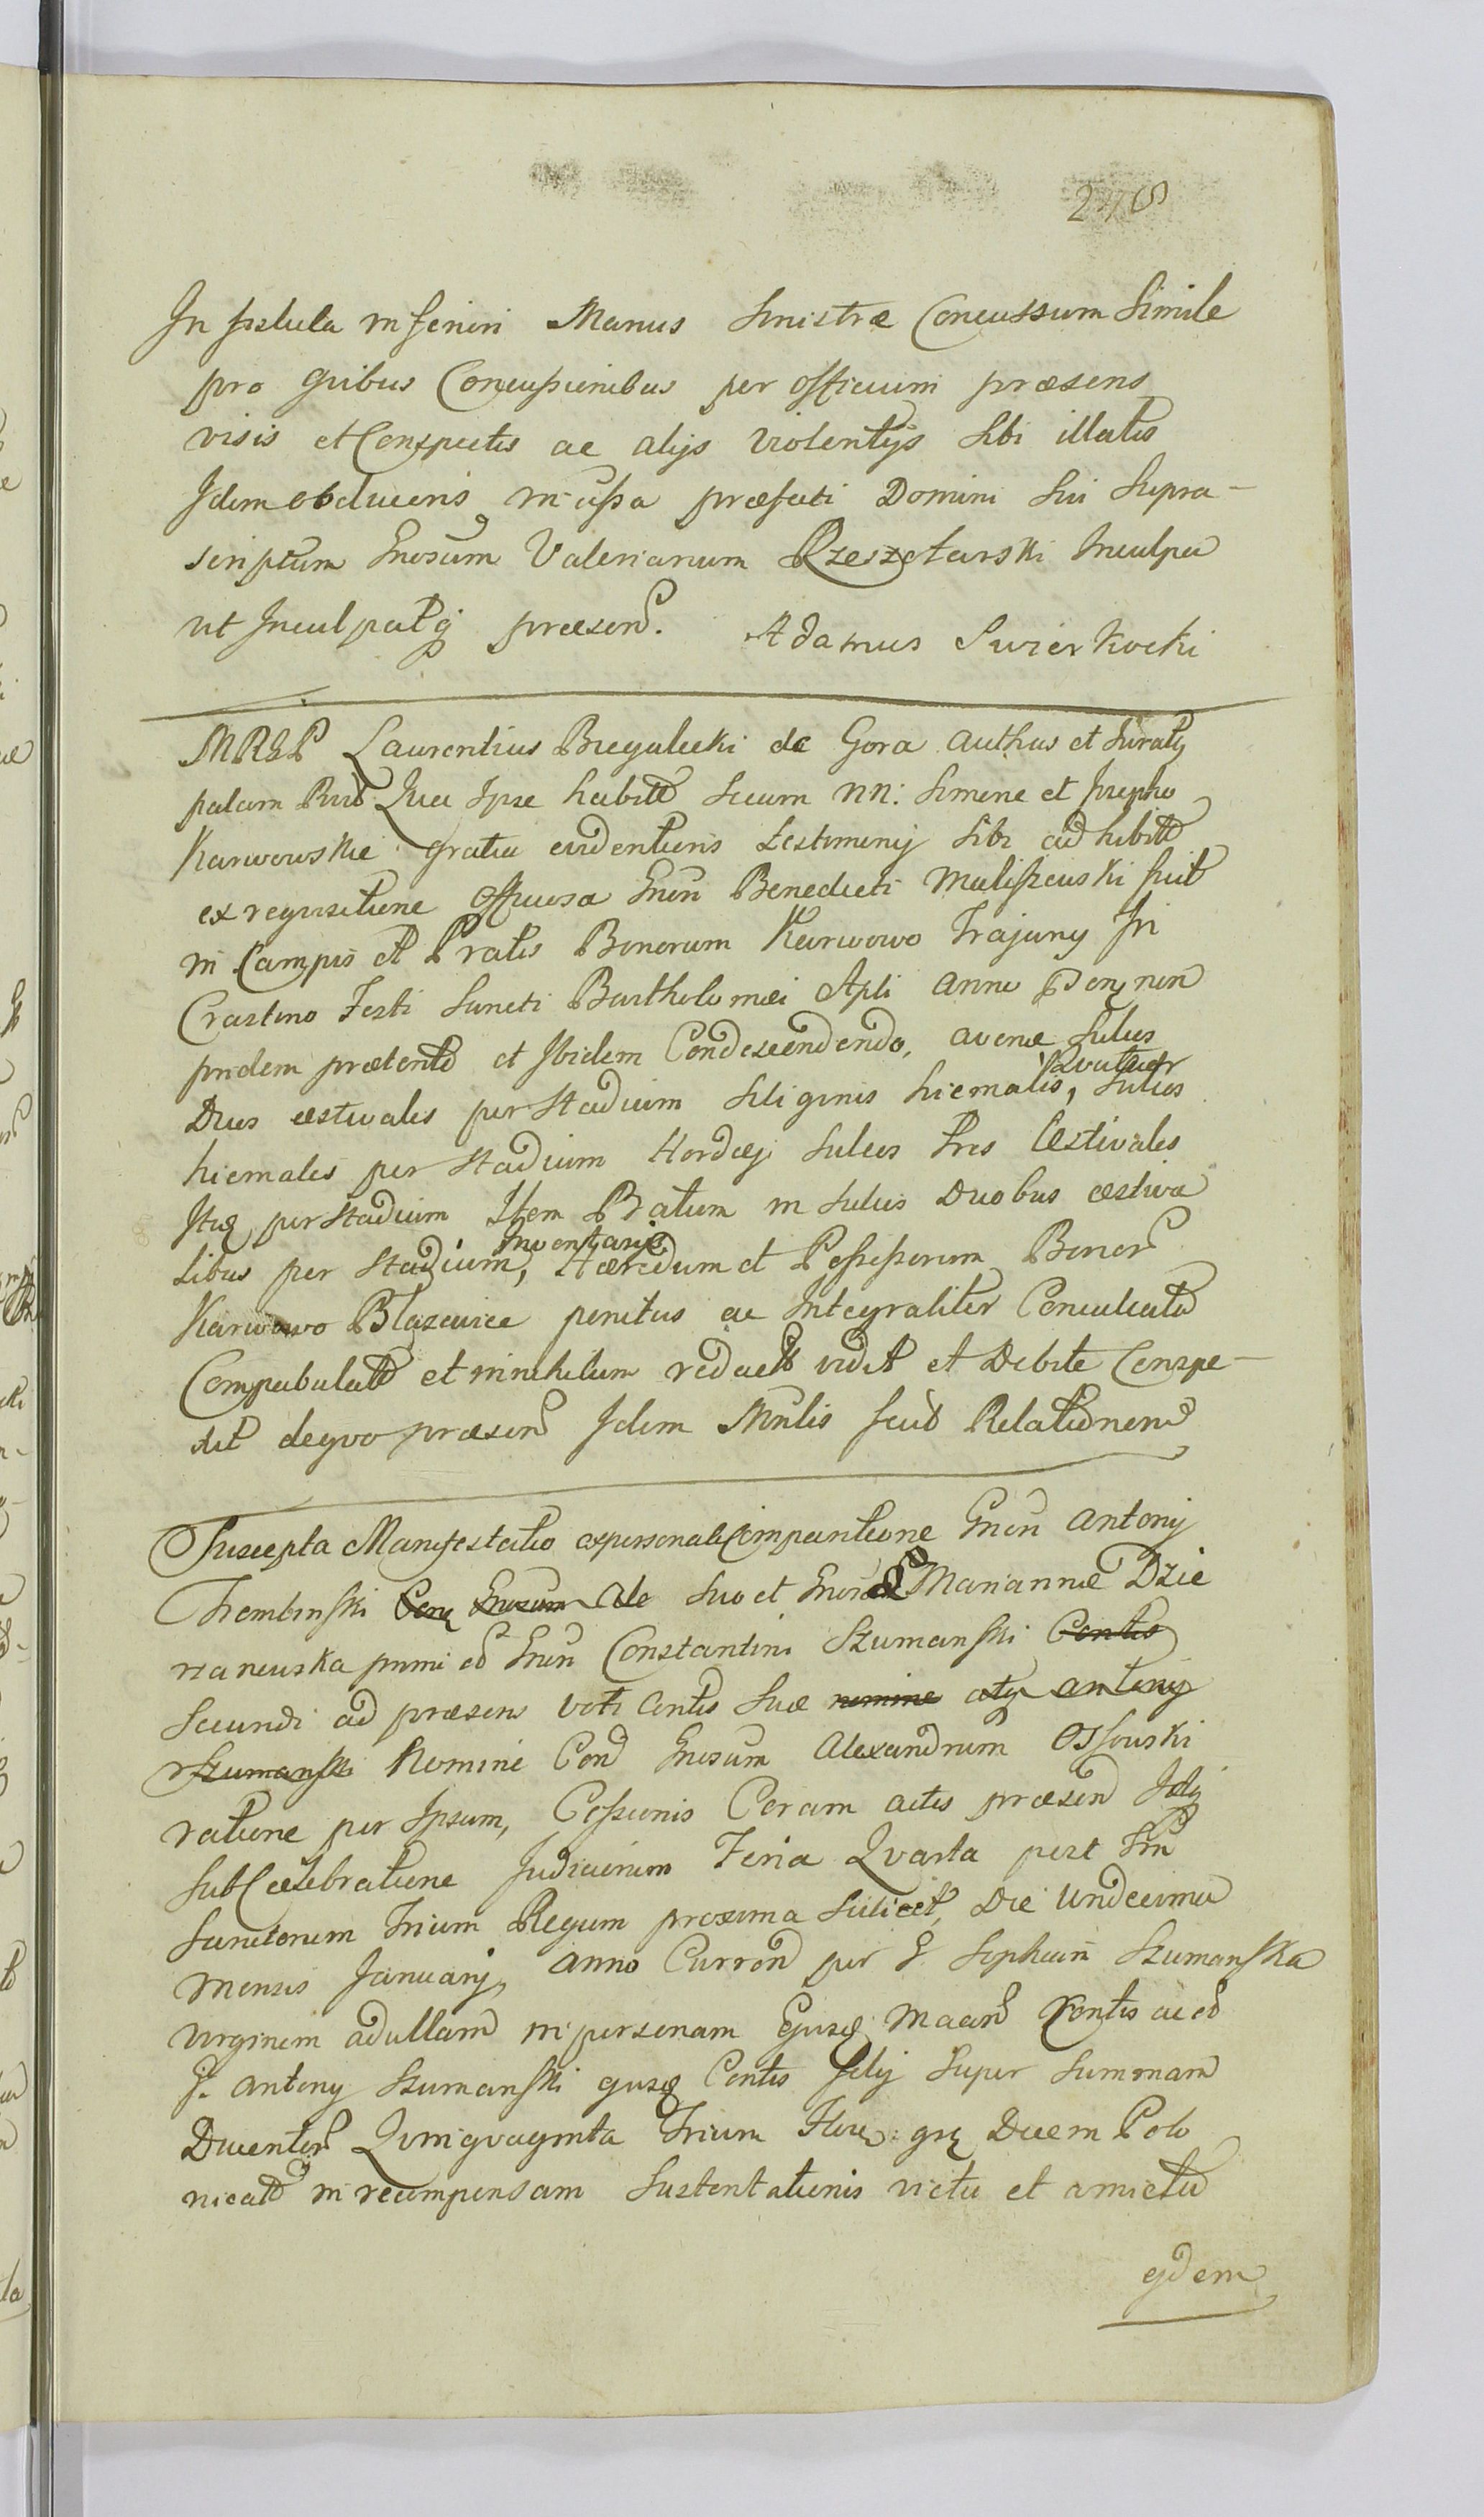 278
In spatula inferiori Manus Sinistræ Concussum Simile
pro quibus Concussionibus per officium præsens
visis et Conspectis ac alijs violentijs Sibi illatis
Idem obducens in causa præfati Domini Sui Supra-
scriptum Gnosum Valerianum Rzeszotarski Inculpa
ut Inculpatq præsen. Adamus Swierkocki
MRGP Laurentius Biegalecki de Gora authus et Juratq
palam Rnd Qua Ipse habito Secum nn: Simone et Josepho
Karwowskie gratia evidentioris Testimonij Sibi adhibito
ex requisitione Officiosa Gnon Benedicti Maliszewski fuit
in Campis et Pratis Bonorum Karwowo Trojany In
Crastino Festi Sancti Bartholomæi Apli anno non
pridem præterito et Ibidem Condescendendo, avenæ Sulcos
Duos æstivales per Stadium Siliginis hiemalis, Sulcos Quatuor
hiemales per Stadium Hordej Sulcos Tres Æstivales
Itq per Stadium Item Pratum in Sulcis Duobus æstiva
libus per Stadium, Hæredum et Possessorum Bonor
Karwowo Błazewice penitus ac Integraliter Conculcato
Compabulato et in nihilum redact vidit et Debite Conspe-
xit de quo præsen Idem Mnlis fecit Relationem
Suscepta Manifestatio ex personali Comparitione Gnon Antonij
Trembinski Conq Gnosum Ale Suo et Gnosæ Mariannæ Dzie
rzanowska primi eo Gnon Constantini Szumanski Contis
Secundi ad præsens voti Contis Suæ nomine atq antonij
Szumanski Nomine Con Gnosum Alexandrum Ossowski
ratione per Ipsum, Cessionis Coram actis præsen
Sub Cælebratione Judiciorum Feria Quarta post Fm
Sanctorum Trium Regum proxima Scilicet, Die Undecima
Mensis Januarij, Anno Curren per G Sophiam Szumanska
virginem ad ullam in personam Ejusq Contis ac eo
G. Antony Szumanski ejusq Contis filij Super Summam
Ducentor Quinquaginta Trium Flor: grq Decem Polo
nicalo in recompensam Sustentationis victu et amictu
ejdem